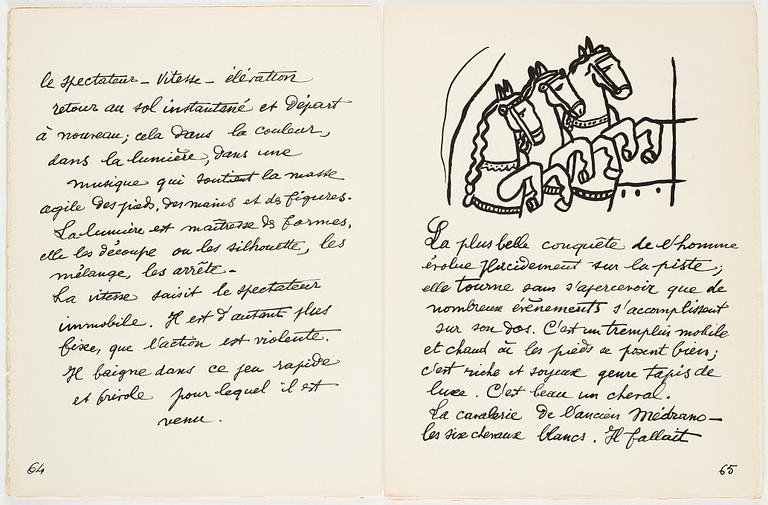 le spectateur – vitesse – élévation
retour au sol instantané et départ
à nouveau; cela dans la couleur,
dans la lumière, dans une
musique qui soutient la masse
agile des pieds, des mains et des figures.
La lumière est maîtresse des formes,
elle les découpe ou les silhouette, les
mélange, les arrête –
La vitesse saisit le spectateur
immobile. Il est d'autant plus
fixe, que l'action est violente.
Il baigne dans ce jeu rapide
et frivole pour lequel il est
venu.
64
La plus belle conquête de l'homme
évolue placidement sur la piste;
elle tourne sans s'apercevoir que de
nombreux évènements s'accomplissent
sur son dos. C'est un tremplin mobile
et chaud où les pieds se posent bien;
c'est riche et soyeux genre tapis de
luxe. C'est beau un cheval.
La cavalerie de l'ancien Médrano –
les six chevaux blancs. Il fallait
65